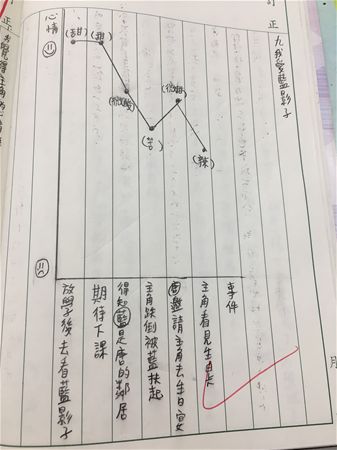 訂正
九我愛藍影子
心情
(甜)
(甜)
(微酸)
(苦)
(微甜)
(辣)
事件
主角看見生日卡
唐邀請主角去生日宴
主角跌倒被藍扶起
得知藍是唐的鄰居
期待下課
放學後去看藍影子
正
月